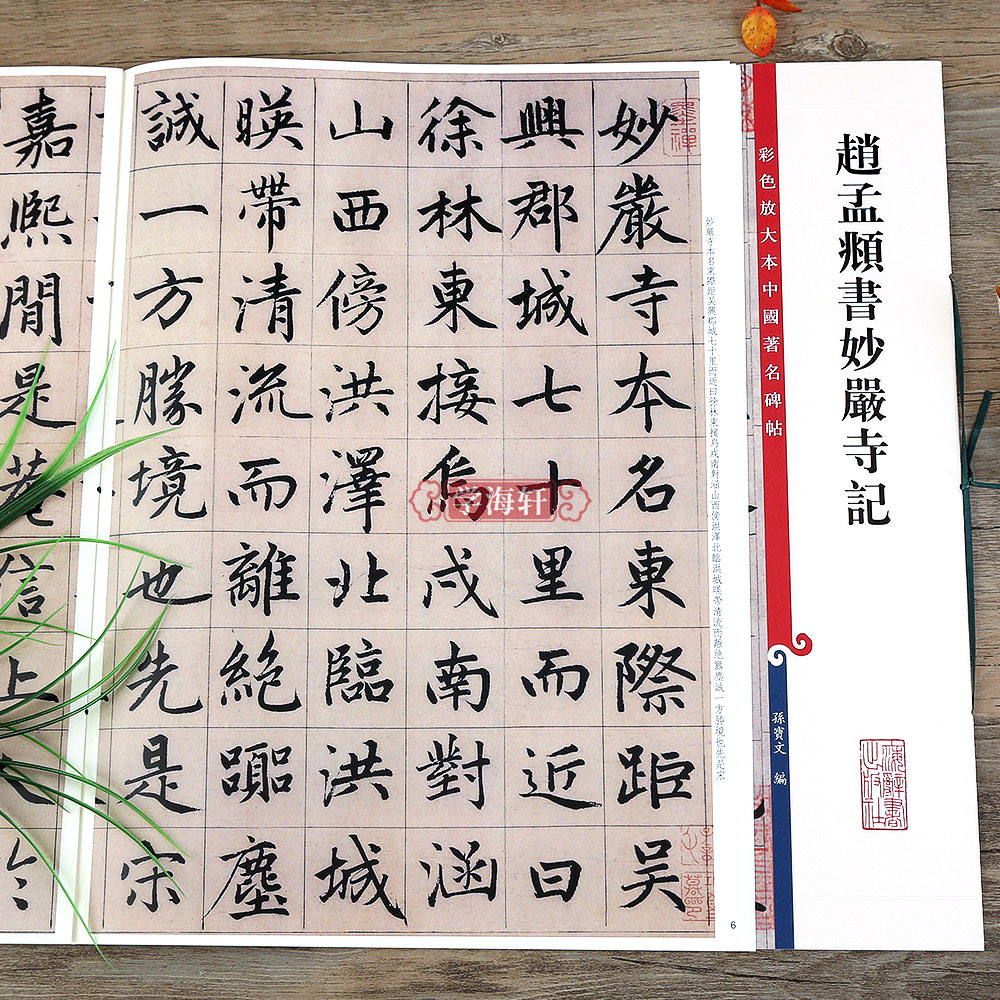 趙孟頫書妙嚴寺記
彩色放大本中國著名碑帖
孫寶文 編
妙嚴寺本名東際距吳興郡城七十里而近曰徐林東接烏戍南對涵山西傍洪澤北臨洪城暎帶清流而離絕囂塵誠一方勝境也先是宋
妙嚴寺本名東際距吳
興郡城七十里而近曰
徐林東接烏戍南對涵
山西傍洪澤北臨洪城
暎帶清流而離絕囂塵
誠一方勝境也先是宋
嘉熙閒是菴信上
学海轩
6